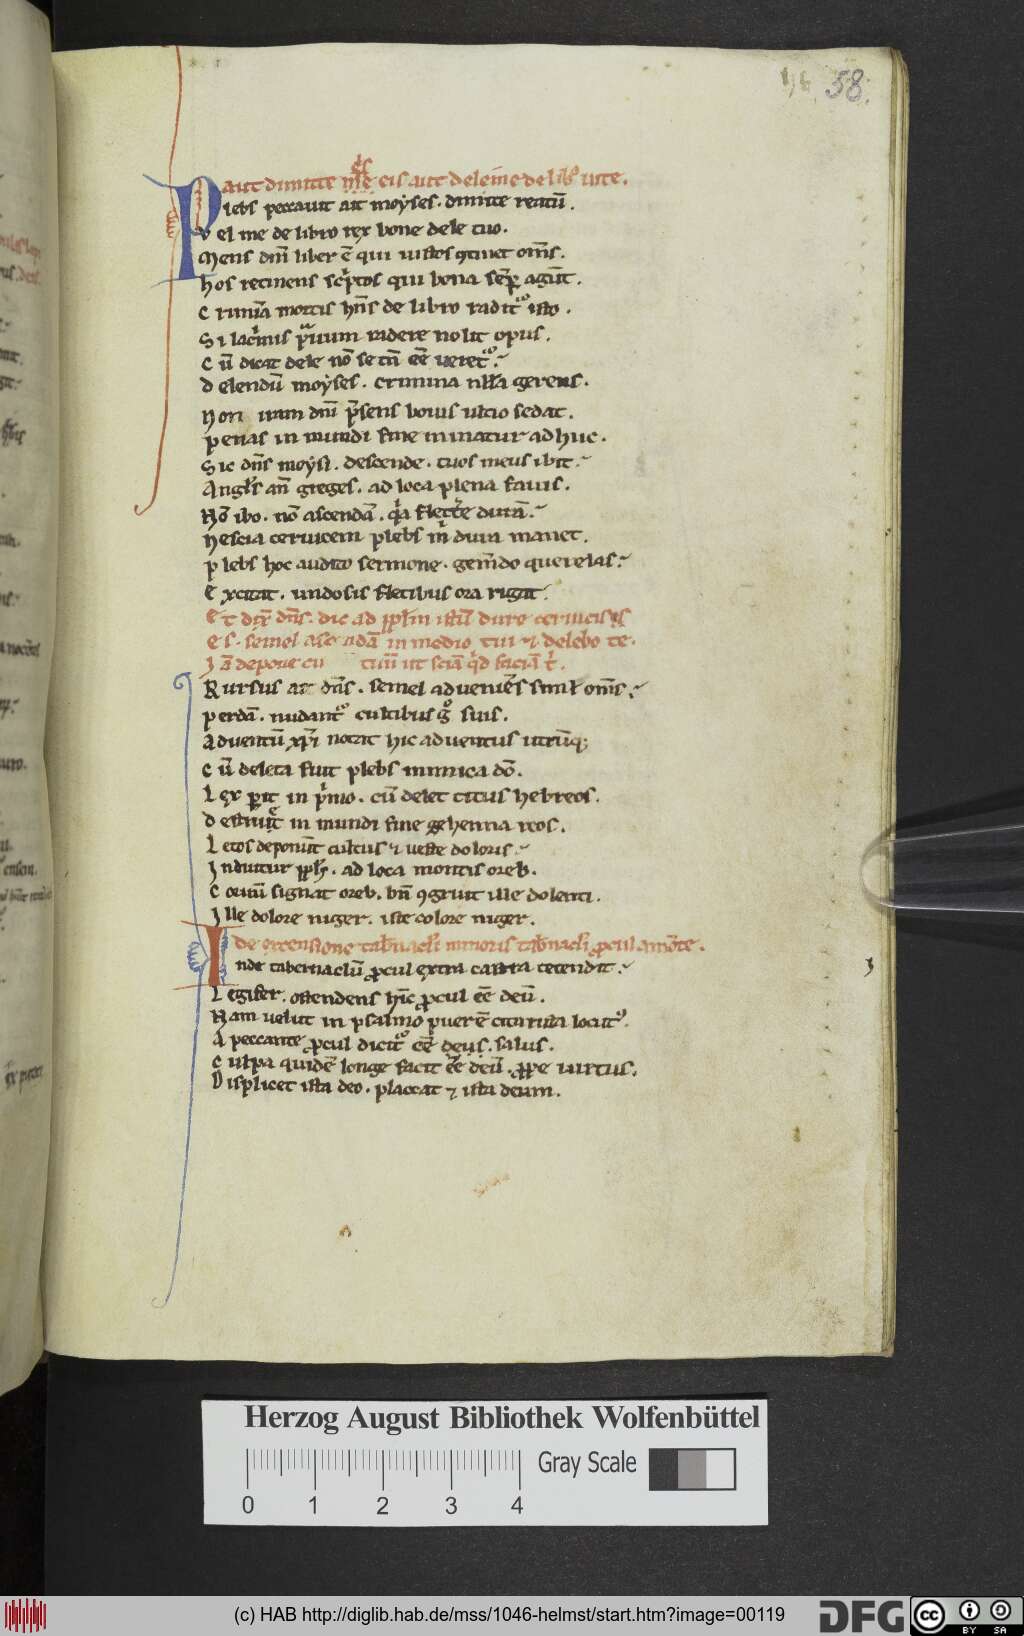 58.
aut dimitte eis aut dele me de libro uite.
Plebs peccauit ait moyses. dimitte reatū.
Vel me de libro rex bone dele tuo.
Mens dnī liber ē qui iustos ꝯtinet om̄s.
hos retinens sc'ptos qui bona sēp agūt.
Crimīa mortis hn̄s de libro radit᷒ isto.
Si lac'mis p'uum radere nolit opus.
Cū dicat dele nō se tn̄ eē ueret᷒.
delendū moyses. crimina nlla gerens.
Non iram dnī p̄sens boius ultio sedat.
penas in mundi fine minatur adhuc.
Sic dn̄s moysi. descende. tuos meus ibit.
Angl's an̄ greges. ad loca plena fauis.
Nō ibo. nō ascendā. q'a flectere durā.
Nescia ceruicem plebs m' dura manet.
plebs hoc audito sermone. gem̄do querelas.
Excitat. undosis fletibus ora rigat.
Et dix' dn̄s. dic ad ppl'm istū dure ceruicis
es. semel asc dā in medio tui ⁊ delebo te.
Iā depone cu tuū ut sciā q'd faciā t'.
Rursus a dn̄s. semel adueniēs simł om̄s.
perdā. nudant᷒ cultibus g° suis.
aduentū xp'i notat hic aduentus utrūq;
Cū deleta fuit plebs inimica dō.
Lex pit in p'mo. cū delet titus hebreos.
destruit in mundi fine gehenna reos.
Letos deponūt cultus ⁊ ueste doloris.
Induitur ppl's. ad loca montis oreb.
Coruū signat oreb. bn̄ ꝯgruit ille dolenti.
Ille dolore niger. iste colore niger.
de extensione tab'nacl'i minoris tab'nacl'i procul a mōte.
Inde tabernaclū procul extra castra tetendit.
Legifer. ostendens hīc procul eē deū.
Nam uelut in psalmo puer ē citarista locut᷒.
A peccante procul dicit᷒ eē deus. salus.
Culpa quidē longe facit eē deū. prope uirtus.
Displicet ista deo. placeat ⁊ ista deum.
Herzog August Bibliothek Wolfenbüttel
Gray Scale
0 1 2 3 4
(c) HAB http://diglib.hab.de/mss/1046-helmst/start.htm?image=00119
DFG
cc
BY SA